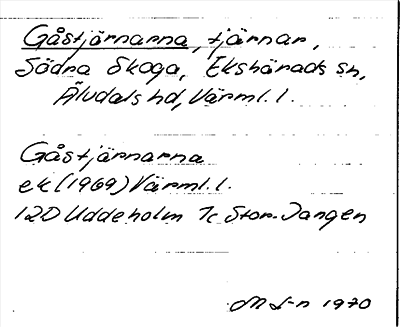 Gåstjärnarna, tjärnar,
Södra Skoga, Ekshärads sn,
Älvdals hd, Värml. l.
Gåstjärnarna
ek (1969) Värml. l.
12D Uddeholm 7c Stor-Jangen
1970